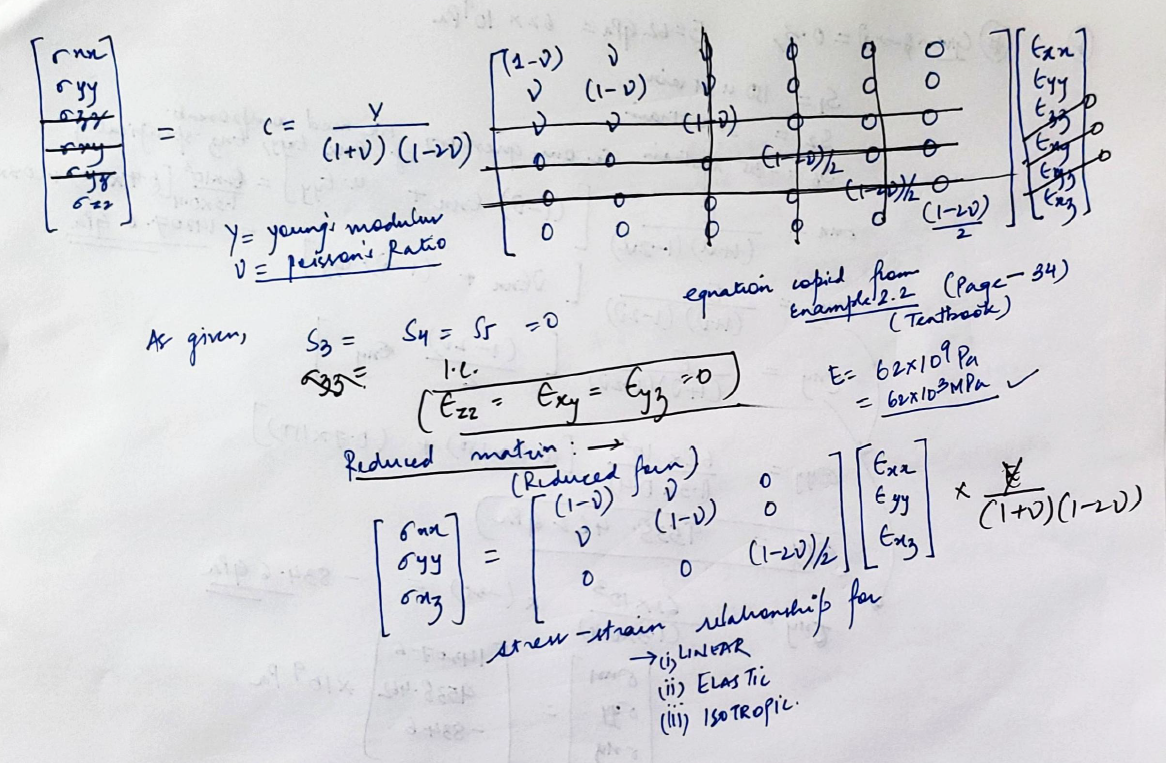 [σxx σyy σzz σxy σyz σzz] = C = Y / (1+ν) (1-2ν) [(1-ν) ν ν 0 0 0
ν (1-ν) ν 0 0 0
ν ν (1-ν) 0 0 0
0 0 0 (1-2ν)/2 0 0
0 0 0 0 (1-2ν)/2 0
0 0 0 0 0 (1-2ν)/2] [Exx Eyy Ezz Exy Eyz Exz]
0
0
0
Y = young's modulus
ν = poisson's Ratio
equation copied from
Example 2.2 (Page-34)
(Textbook)
As given, S3 = S4 = S5 = 0
σ33 =
i.e.
(Ezz = Exy = Eyz = 0)
E = 62x10⁹ Pa
= 62x10³ MPa ✓
Reduced matrix : →
(Reduced form)
[σxx σyy σxz] = [(1-ν) ν 0
ν (1-ν) 0
0 0 (1-2ν)/2] [Exx Eyy Exz] x E / (1+ν)(1-2ν)
stress-strain relationship for
→ (i) LINEAR
(ii) ELASTIC
(iii) ISOTROPIC.